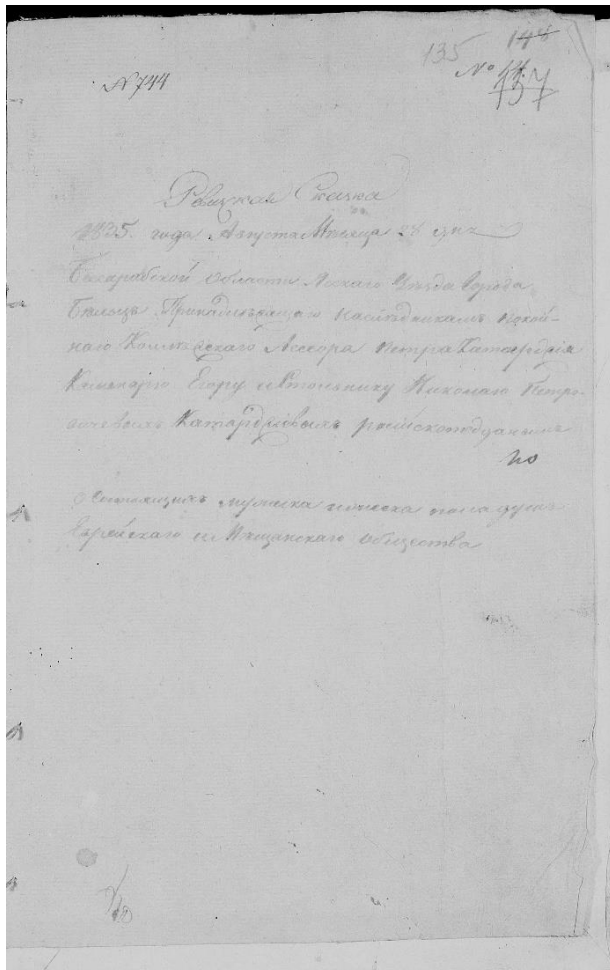 135 148
№ 744
137
Ревизкая Сказка
1835. года Августа Месяца 28 дня
Бесарабской Области Ясскаго Уезда Города
Бельцъ Принадлежащаго наследникамъ покой-
наго Коллежскаго Асесора Петра Катарджія
Егору и Стольнику Николаю Петро-
вичевымъ Катарджіовымъ
О состоящихъ мужеска и женска пола душъ
Еврейскаго Мещанскаго Общества